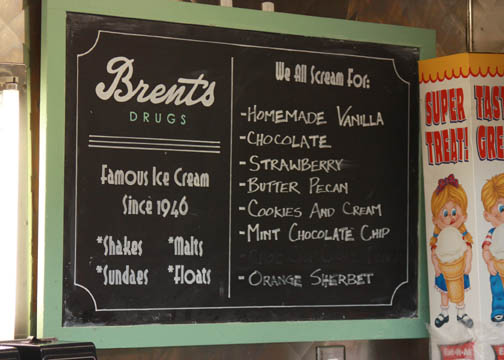 Brent's
DRUGS
Famous Ice Cream
Since 1946
*Shakes *Malts
*Sundaes *Floats
We All Scream For:
-HOMEMADE VANILLA
-CHOCOLATE
-STRAWBERRY
-BUTTER PECAN
-COOKIES AND CREAM
-MINT CHOCOLATE CHIP
-ORANGE SHERBET
SUPER
TREAT!